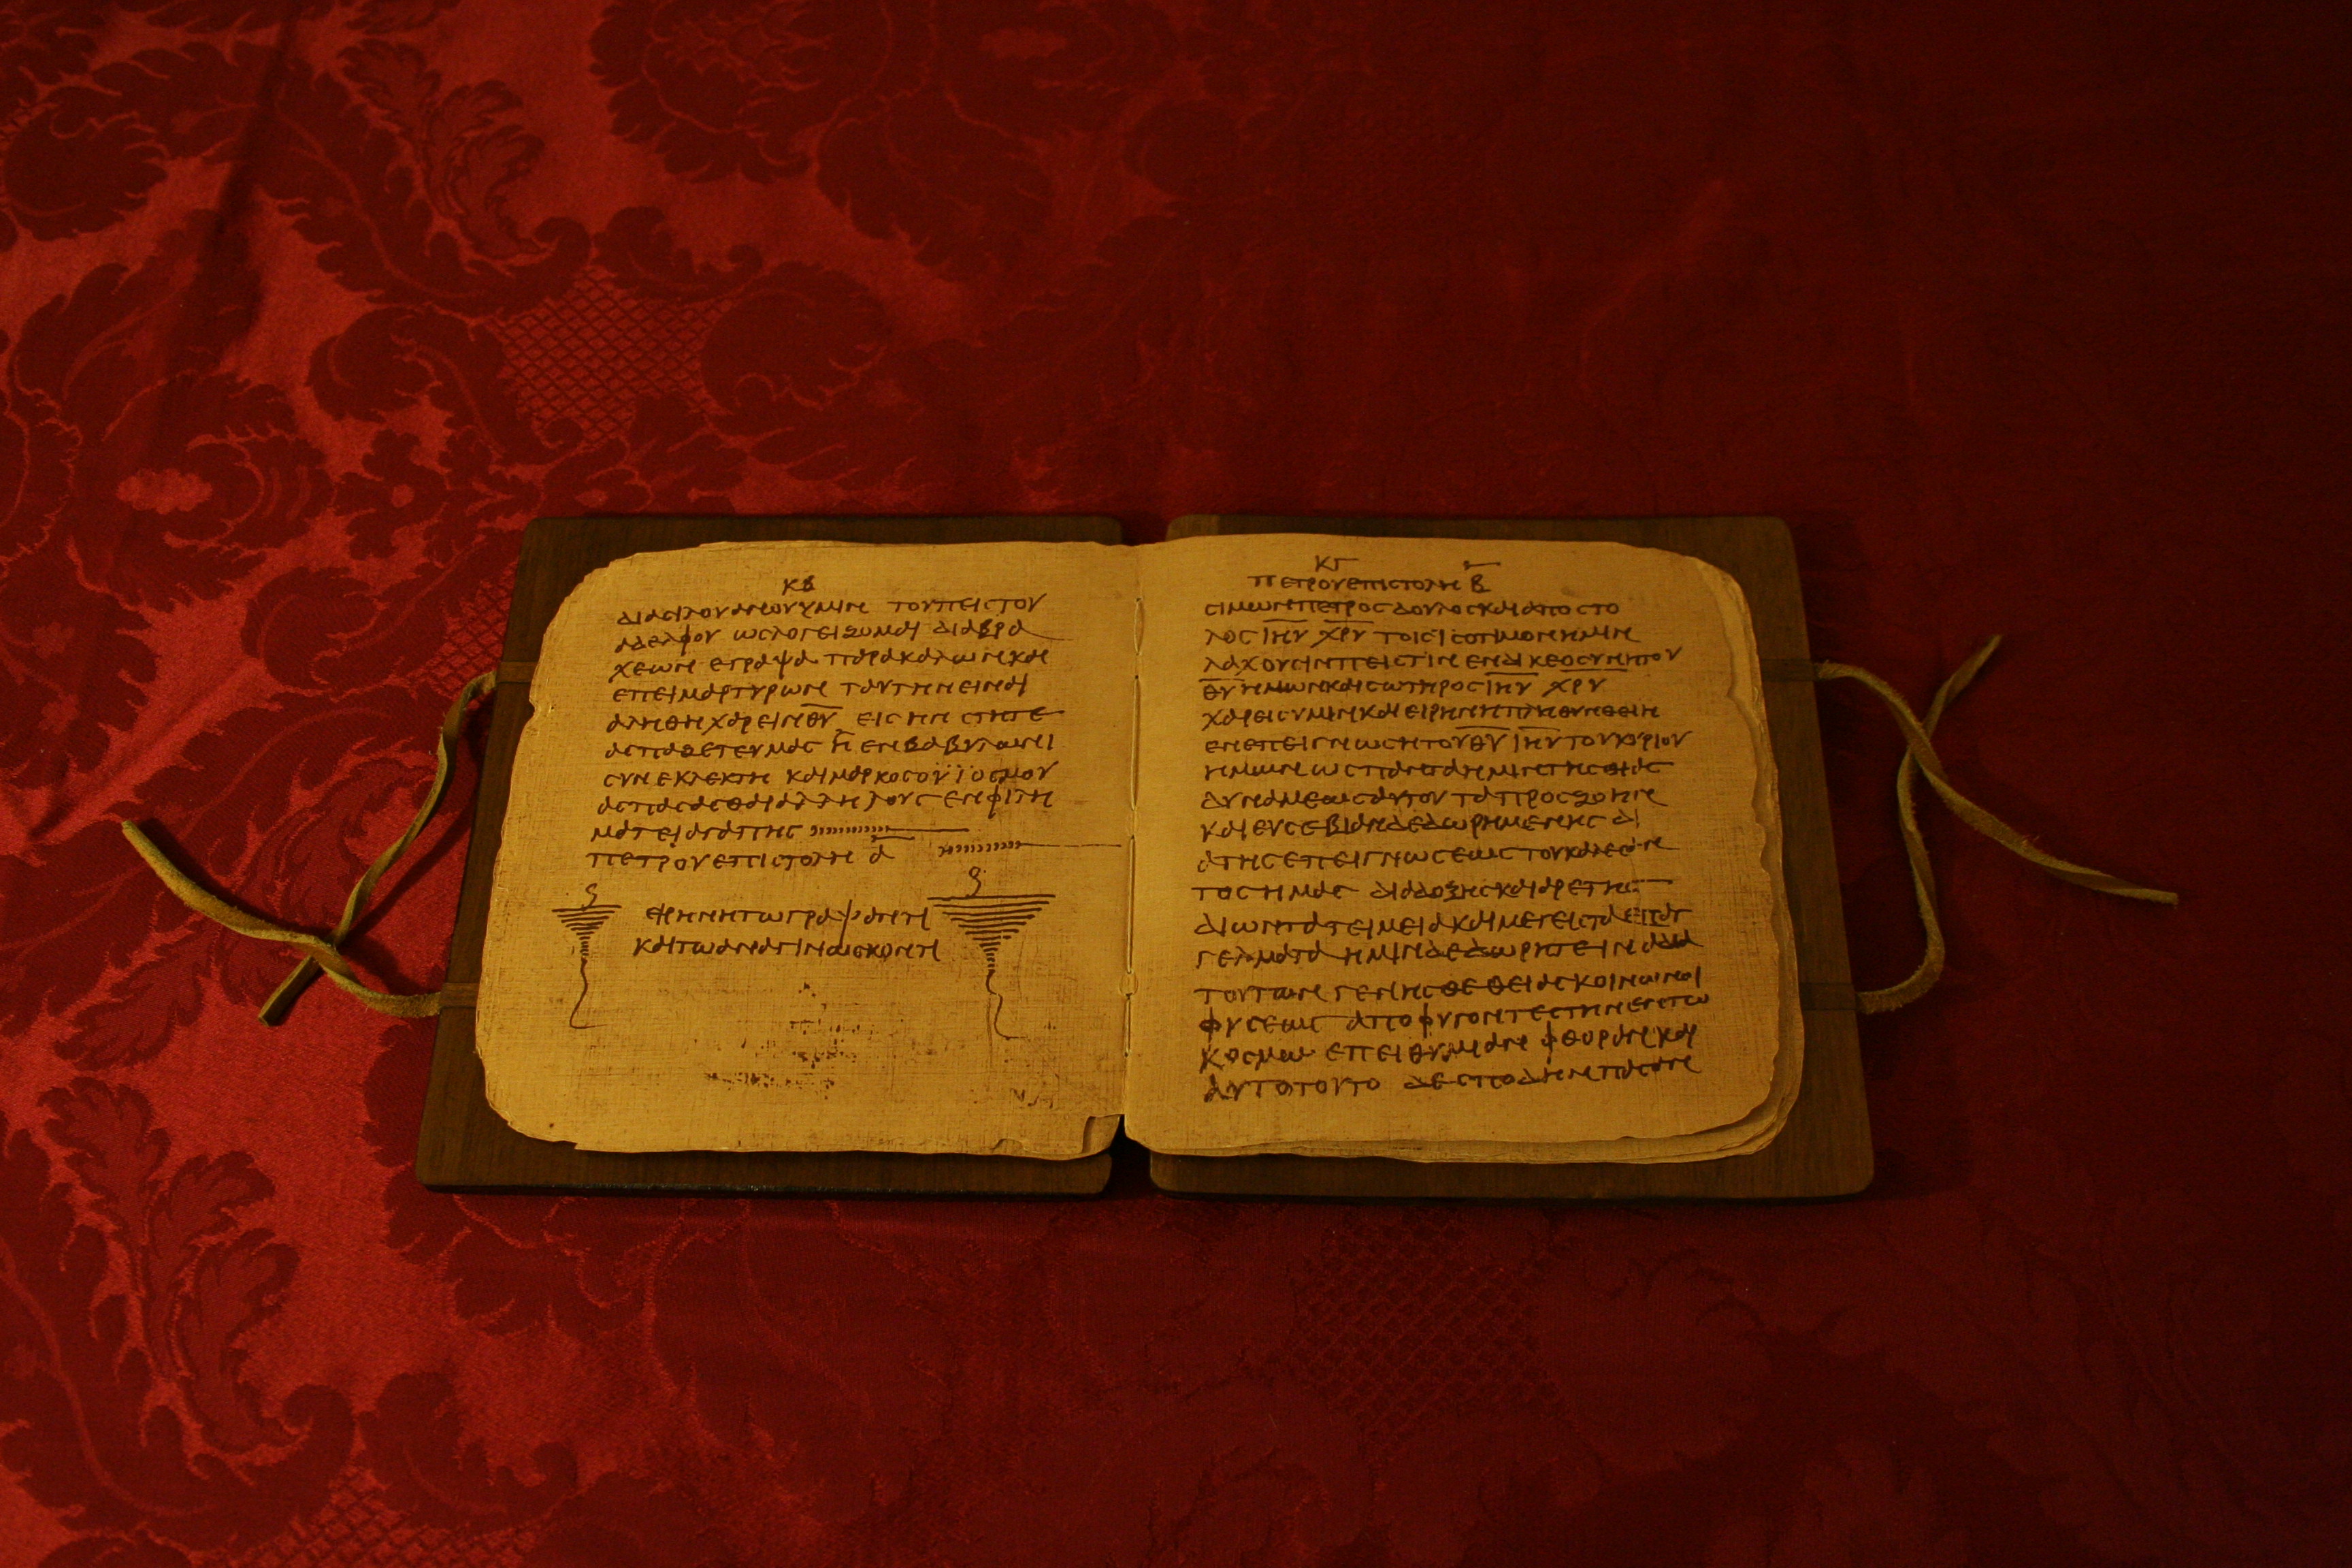 ΚΒ
ΔΙΑΣΙΛΟΥΑΝΟΥΥΜΙΝ ΤΟΥΠΕΙΣΤΟΥ
ΑΔΕΛΦΟΥ ΩΣΛΟΓΕΙΖΟΜΑΙ ΔΙΑΒΡΑ
ΧΕΩΝ ΕΓΡΑΨΑ ΠΑΡΑΚΑΛΩΝΚΑΙ
ΕΠΕΙΜΑΡΤΥΡΩΝ ΤΑΥΤΗΝΕΙΝΑΙ
ΑΛΗΘΗΧΑΡΕΙΝΘ̅Υ̅ ΕΙΣΗΝ ΣΤΗΤΕ
ΑΣΠΑΖΕΤΕΥΜΑΣ Η ΕΝΒΑΒΥΛΩΝΙ
ΣΥΝΕΚΛΕΚΤΗ ΚΑΙΜΑΡΚΟΣΟΫΪΟΣΜΟΥ
ΑΣΠΑΣΑΣΘΑΙΑΛΛΗΛΟΥΣ ΕΝΦΙΛΗ
ΜΑΤΕΙΑΓΑΠΗΣ
ΠΕΤΡΟΥΕΠΙΣΤΟΛΗ Α̅
ΕΙΡΗΝΗΤΩΓΡΑΨΑΝΤΙ
ΚΑΙΤΩΑΝΑΓΙΝΩΣΚΟΝΤΙ
ΚΓ
ΠΕΤΡΟΥΕΠΙΣΤΟΛΗ Β̅
ΣΙΜΩΝΠΕΤΡΟΣ ΔΟΥΛΟΣΚΑΙΑΠΟΣΤΟ
ΛΟΣΙ̅Η̅Υ̅ Χ̅Ρ̅Υ̅ ΤΟΙΣΙΣΟΤΙΜΟΝΗΜΙΝ
ΛΑΧΟΥΣΙΝΠΕΙΣΤΙΝ ΕΝΔΙΚΕΟΣΥΝΗΤΟΥ
Θ̅Υ̅ΗΜΩΝΚΑΙΣΩΤΗΡΟΣΙ̅Η̅Υ̅ Χ̅Ρ̅Υ̅
ΧΑΡΕΙΣΥΜΙΝΚΑΙΕΙΡΗΝΗΠΛΗΘΥΝΘΕΙΗ
ΕΝΕΠΕΙΓΝΩΣΗΤΟΥΘ̅Υ̅ Ι̅Η̅Υ̅ΤΟΥΚΥΡΙΟΥ
ΗΜΩΝ ΩΣΠΑΝΤΑΗΜΙΝΤΗΣΘΕΙΑΣ
ΔΥΝΑΜΕΩΣΑΥΤΟΥ ΤΑΠΡΟΣΖΩΗΝ
ΚΑΙΕΥΣΕΒΙΑΝΔΕΔΩΡΗΜΕΝΗΣ ΔΙ
ΑΤΗΣΕΠΕΙΓΝΩΣΕΩΣΤΟΥΚΑΛΕΣΑΝ
ΤΟΣΗΜΑΣ ΔΙΑΔΟΞΗΣΚΑΙΑΡΕΤΗΣ
ΔΙΩΝΤΑΤΕΙΜΕΙΑΚΑΙΜΕΓΕΙΣΤΑΕΠΑΓ
ΓΕΛΜΑΤΑ ΗΜΙΝΔΕΔΩΡΗΤΕΙΝΑΔΙΑ
ΤΟΥΤΩΝΓΕΝΗΣΘΕΘΕΙΑΣΚΟΙΝΩΝΟΙ
ΦΥΣΕΩΣ ΑΠΟΦΥΓΟΝΤΕΣΤΗΝΕΝΤΩ
ΚΟΣΜΩ ΕΠΕΙΘΥΜΙΑΝ ΦΘΟΡΑΝΚΑΙ
ΑΥΤΟΤΟΥΤΟ ΔΕΣΠΟΔΗΝΠΑΣΑΝ